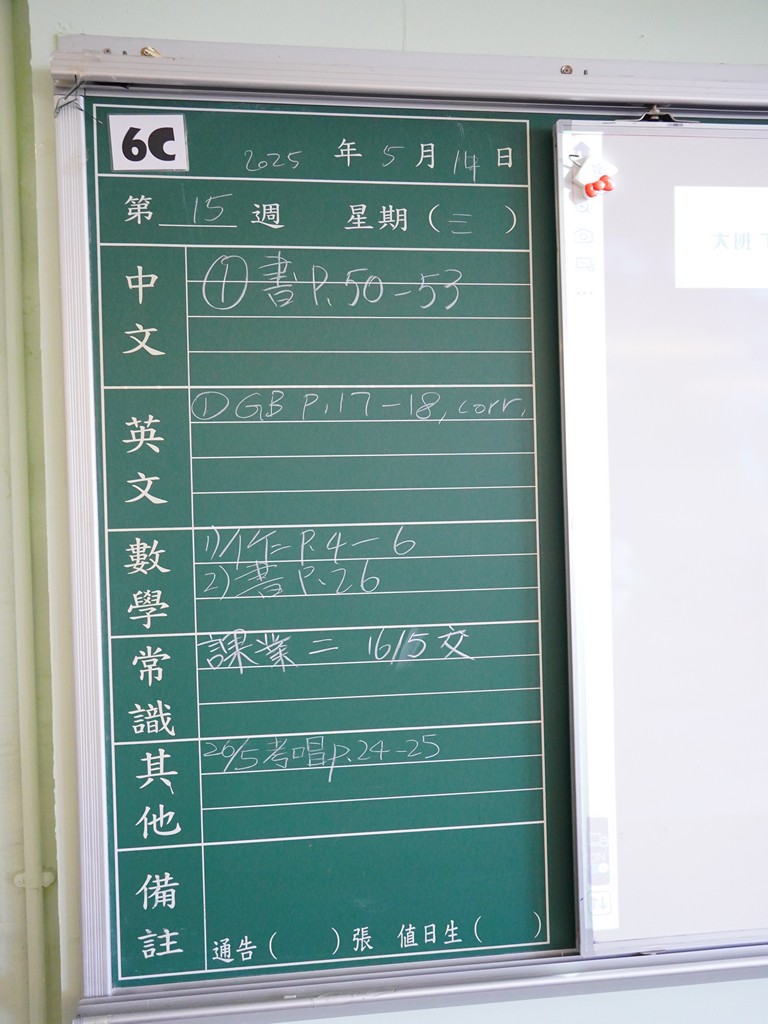 6C 2025 年 5 月 14 日
第 15 週 星期 ( 三 )
中文 ① 書 P.50-53
英文 ① GB P.17-18, corr.
數學 1) 作 P.4-6
2) 書 P.26
常識 課業二 16/5 交
其他 26/5 考唱 p.24-25
備註 通告 ( ) 張 值日生 ( )
大班